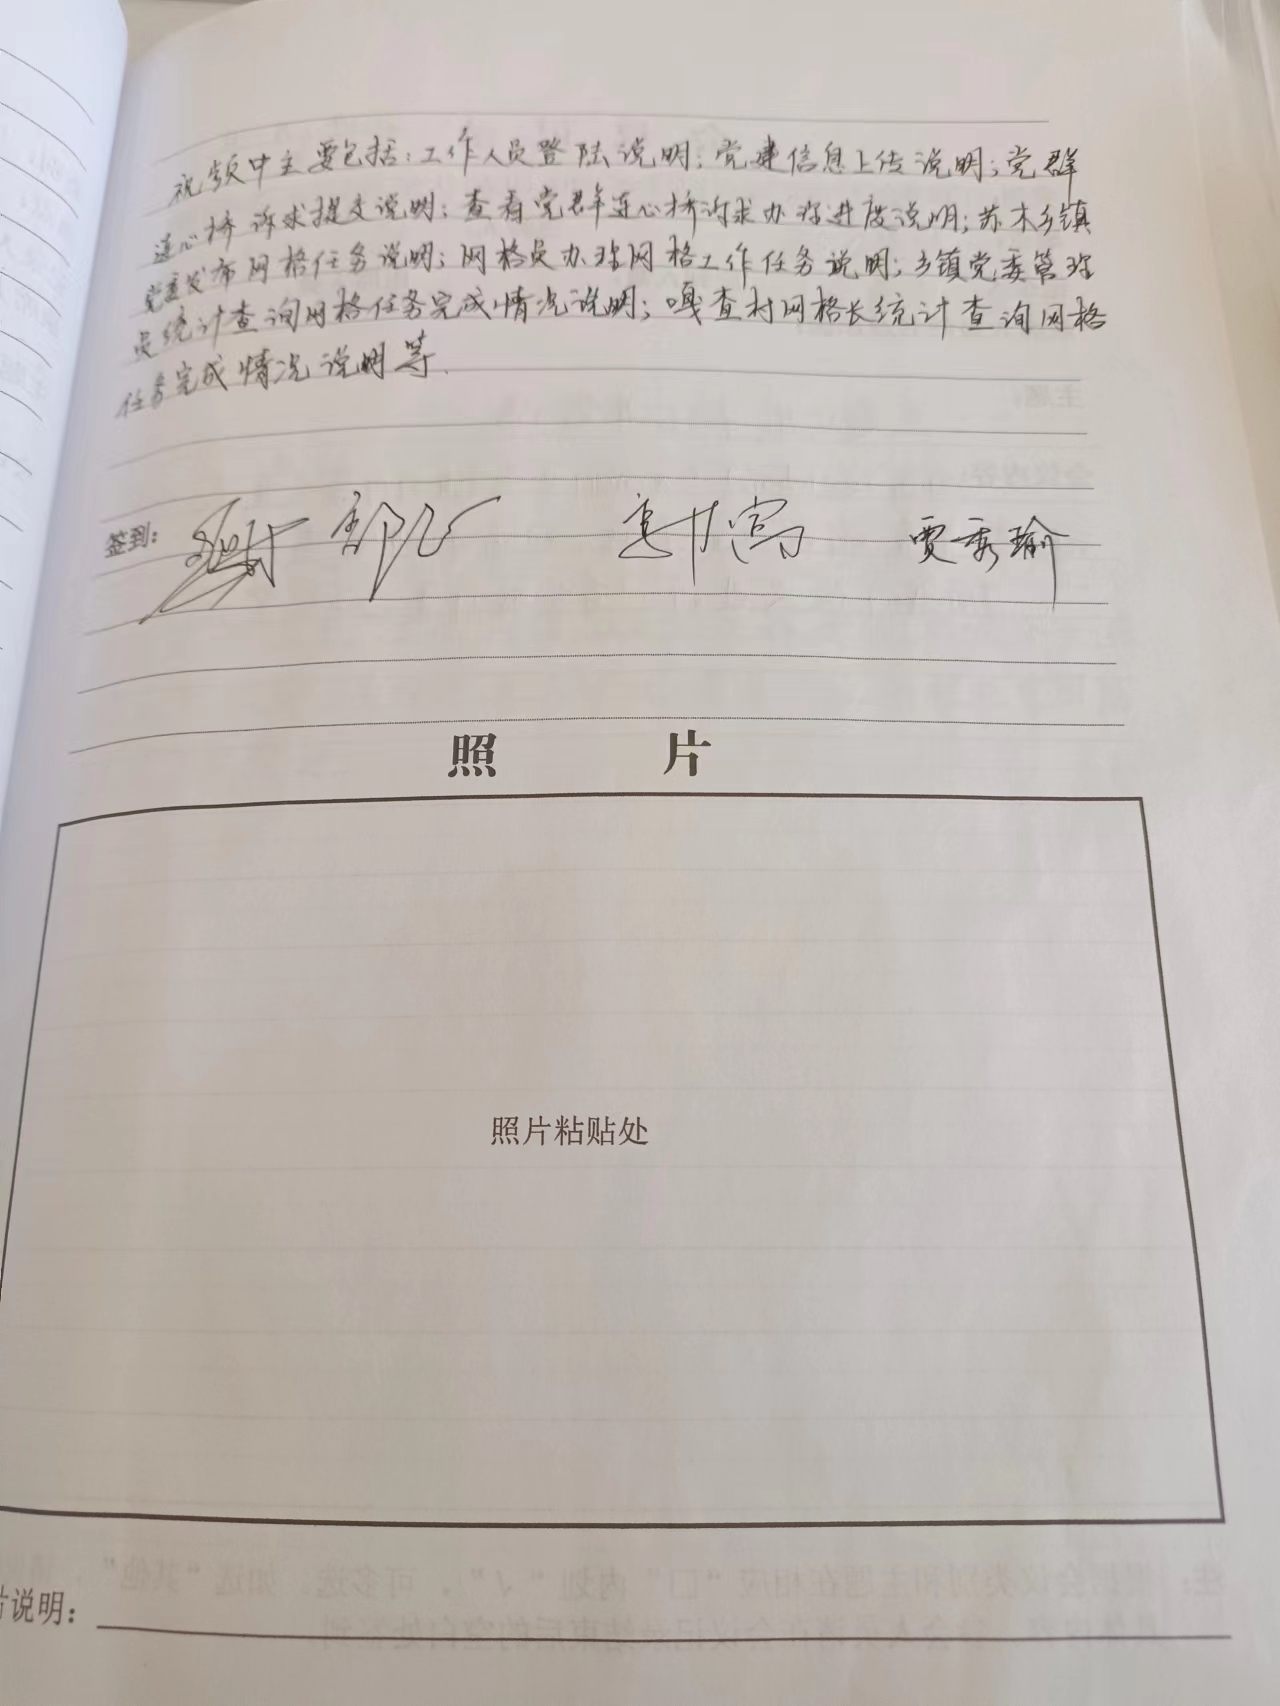 视频中主要包括:工作人员登陆说明;党建信息上传说明;党群
连心桥诉求提交说明;查看党群连心桥诉求办理进度说明;苏木乡镇
党委发布网格任务说明;网格员办理网格工作任务说明;乡镇党委管理
员统计查询网格任务完成情况说明;嘎查村网格长统计查询网格
任务完成情况说明等.
签到: 贾秀瑜
照 片
照片粘贴处
片说明: